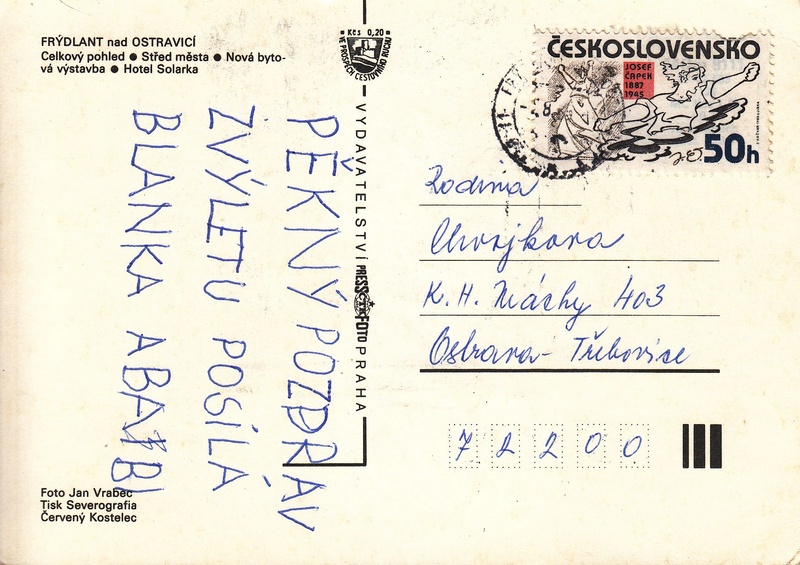 FRÝDLANT nad OSTRAVICÍ
Celkový pohled ● Střed města ● Nová byto-
vá výstavba ● Hotel Solarka
PĚKNÝ POZDRAV
ZVÝLETU POSÍLÁ
BLANKA A BAŽBI
Foto Jan Vrabec
Tisk Severografia
Červený Kostelec
Kčs 0,20
VE PROSPĚCH CESTOVNÍHO RUCHU
VYDAVATELSTVÍ PRESSFOTO PRAHA
ČTK
ČESKOSLOVENSKO
JOSEF
ČAPEK
1887
1945
50h
Rodina
K. H. Máchy 403
Ostrava - Třebovice
72200